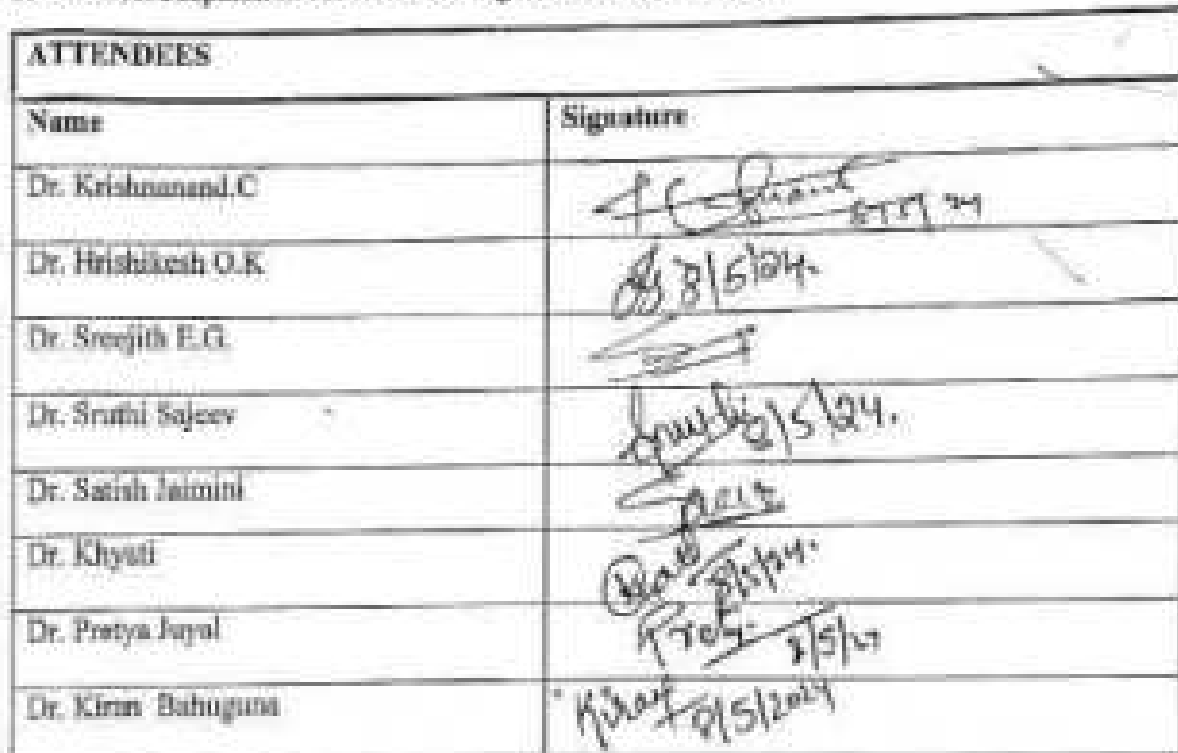 ATTENDEES
Name Signature
Dr. Krishnanand.C
Dr. Hrishikesh O.K 8/5/24.
Dr. Sreejith E.G.
Dr. Sruthi Sajeev 8/5/24.
Dr. Satish Jaimini
Dr. Khyati 8/5/24.
Dr. Pretya Juyal
Dr. Kiran Bahuguna Kiran 8/5/2024